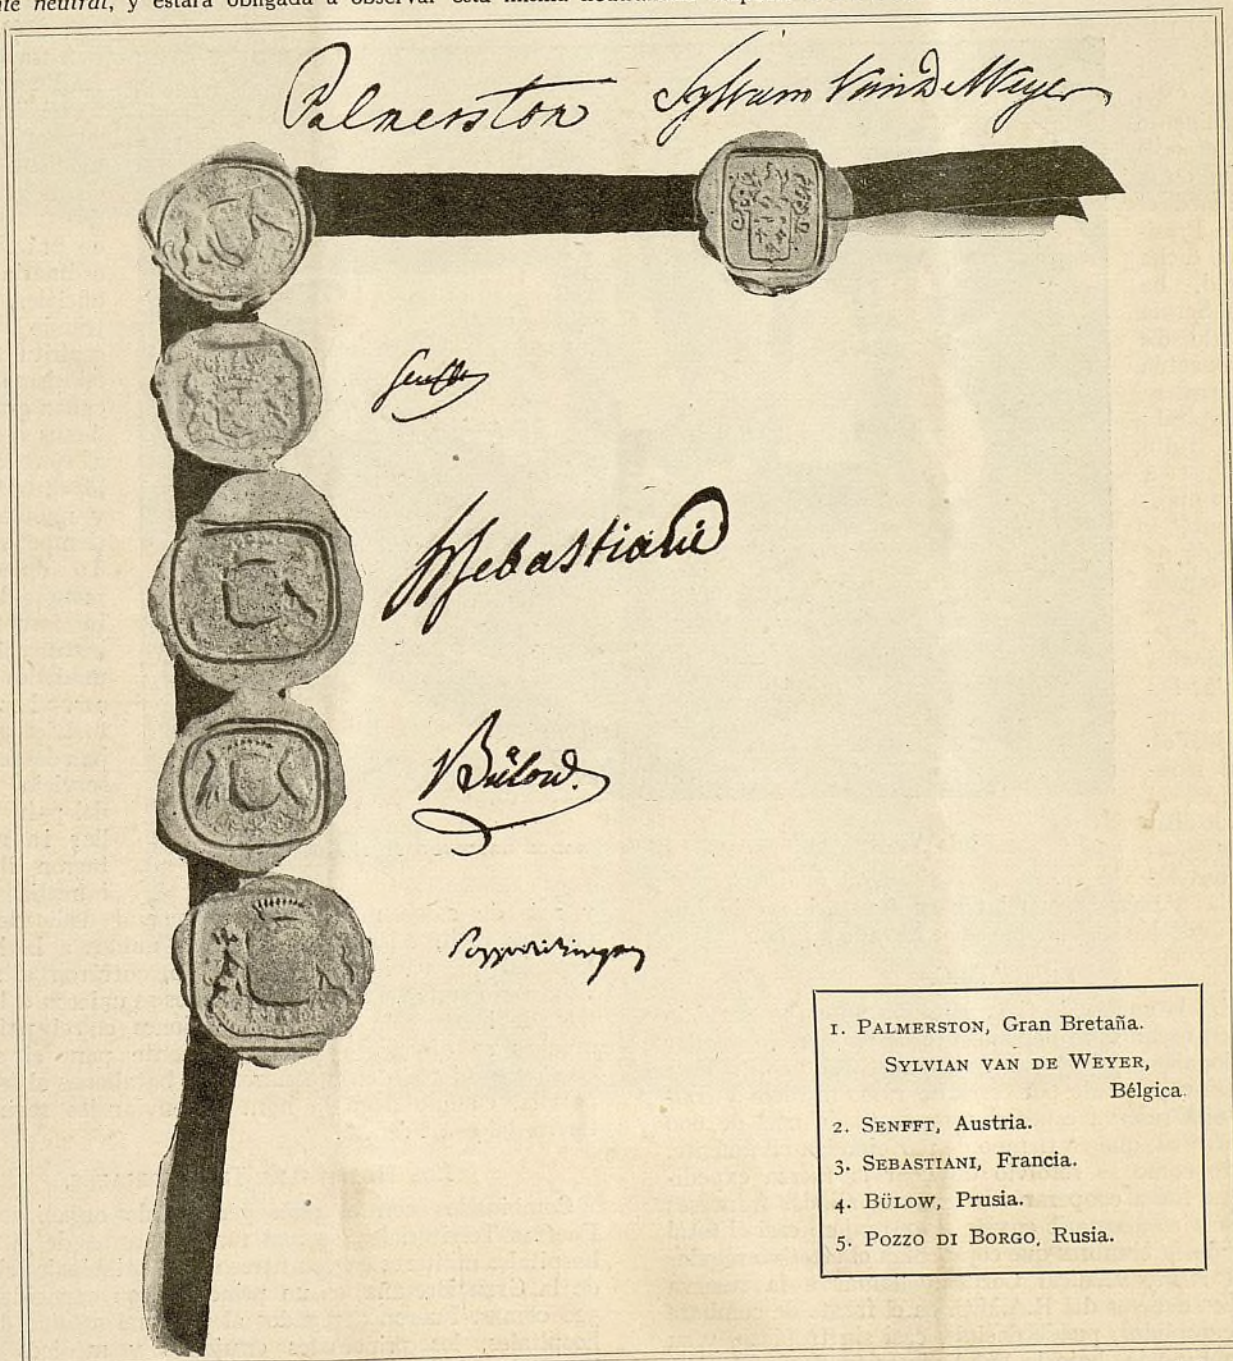 nte neutral, y estará obligada a observar esta misma
Palmerston Sylvain Van de Weyer
Senfft
H Sebastiani
Bülow.
Pozzo di Borgo
1. PALMERSTON, Gran Bretaña.
SYLVIAN VAN DE WEYER,
Bélgica.
2. SENFFT, Austria.
3. SEBASTIANI, Francia.
4. BÜLOW, Prusia.
5. POZZO DI BORGO, Rusia.